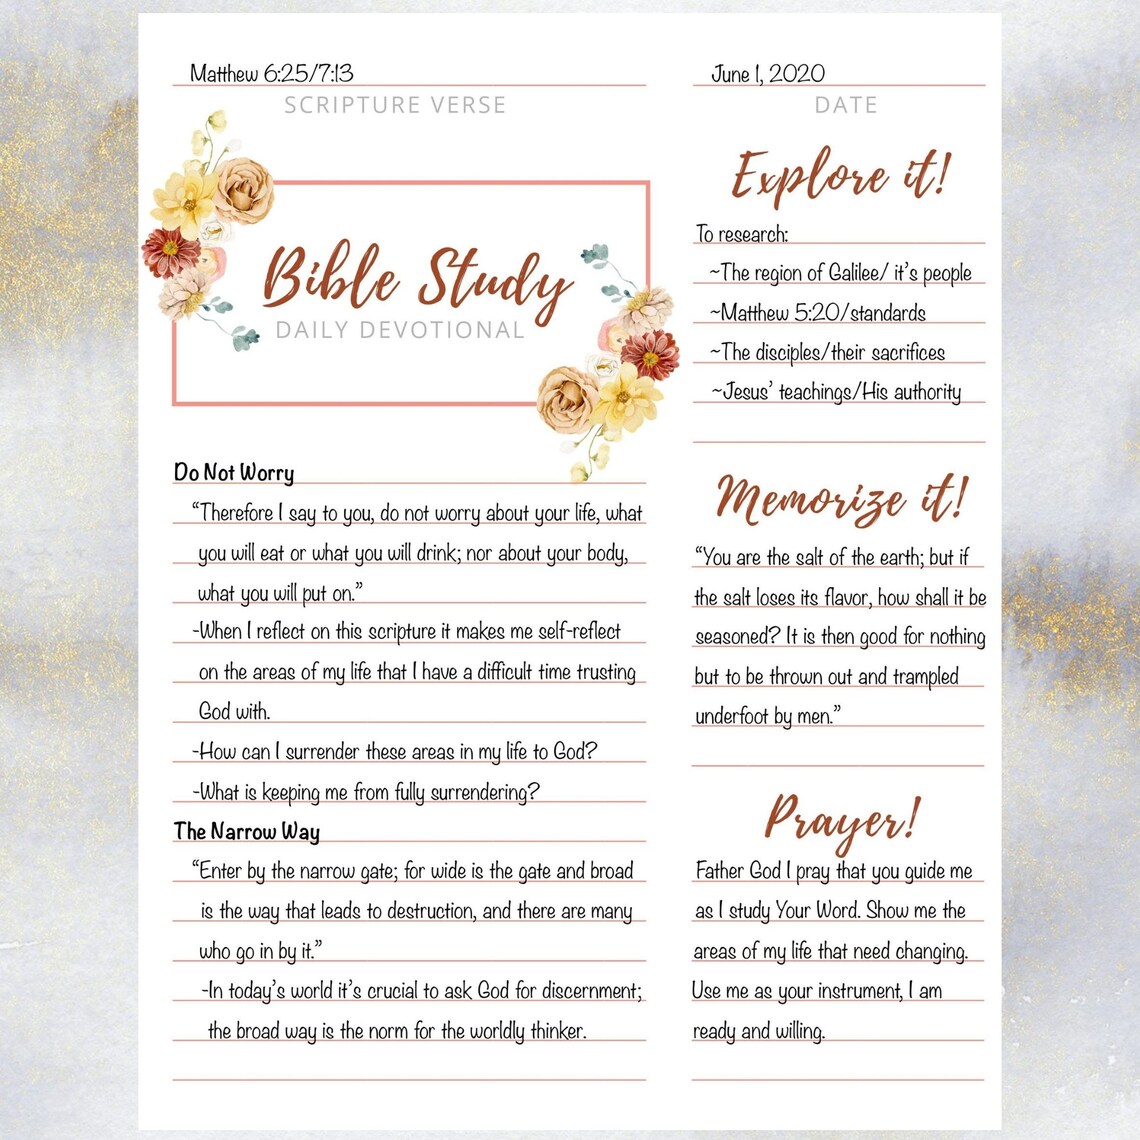 Matthew 6:25/7:13
SCRIPTURE VERSE
June 1, 2020
DATE
Bible Study
DAILY DEVOTIONAL
Do Not Worry
“Therefore I say to you, do not worry about your life, what
you will eat or what you will drink; nor about your body,
what you will put on.”
-When I reflect on this scripture it makes me self-reflect
on the areas of my life that I have a difficult time trusting
God with.
-How can I surrender these areas in my life to God?
-What is keeping me from fully surrendering?
The Narrow Way
“Enter by the narrow gate; for wide is the gate and broad
is the way that leads to destruction, and there are many
who go in by it.”
-In today’s world it’s crucial to ask God for discernment;
the broad way is the norm for the worldly thinker.
Explore it!
To research:
~The region of Galilee/ it’s people
~Matthew 5:20/standards
~The disciples/their sacrifices
~Jesus’ teachings/His authority
Memorize it!
“You are the salt of the earth; but if
the salt loses its flavor, how shall it be
seasoned? It is then good for nothing
but to be thrown out and trampled
underfoot by men.”
Prayer!
Father God I pray that you guide me
as I study Your Word. Show me the
areas of my life that need changing.
Use me as your instrument, I am
ready and willing.